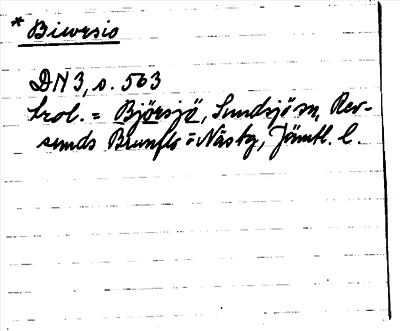 * Biwrsio
DN 3, s. 563
trol. = Björsjö, Sundsjö sn, Rev-
sunds Brunflo o Näs tg, Jämtl. l.